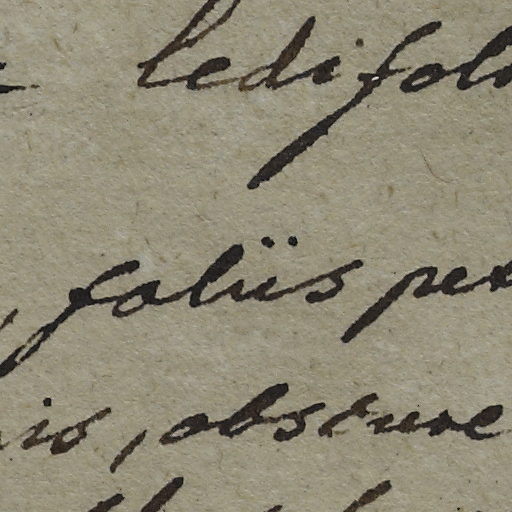 ledifoli
, foliis pet
is, obscure